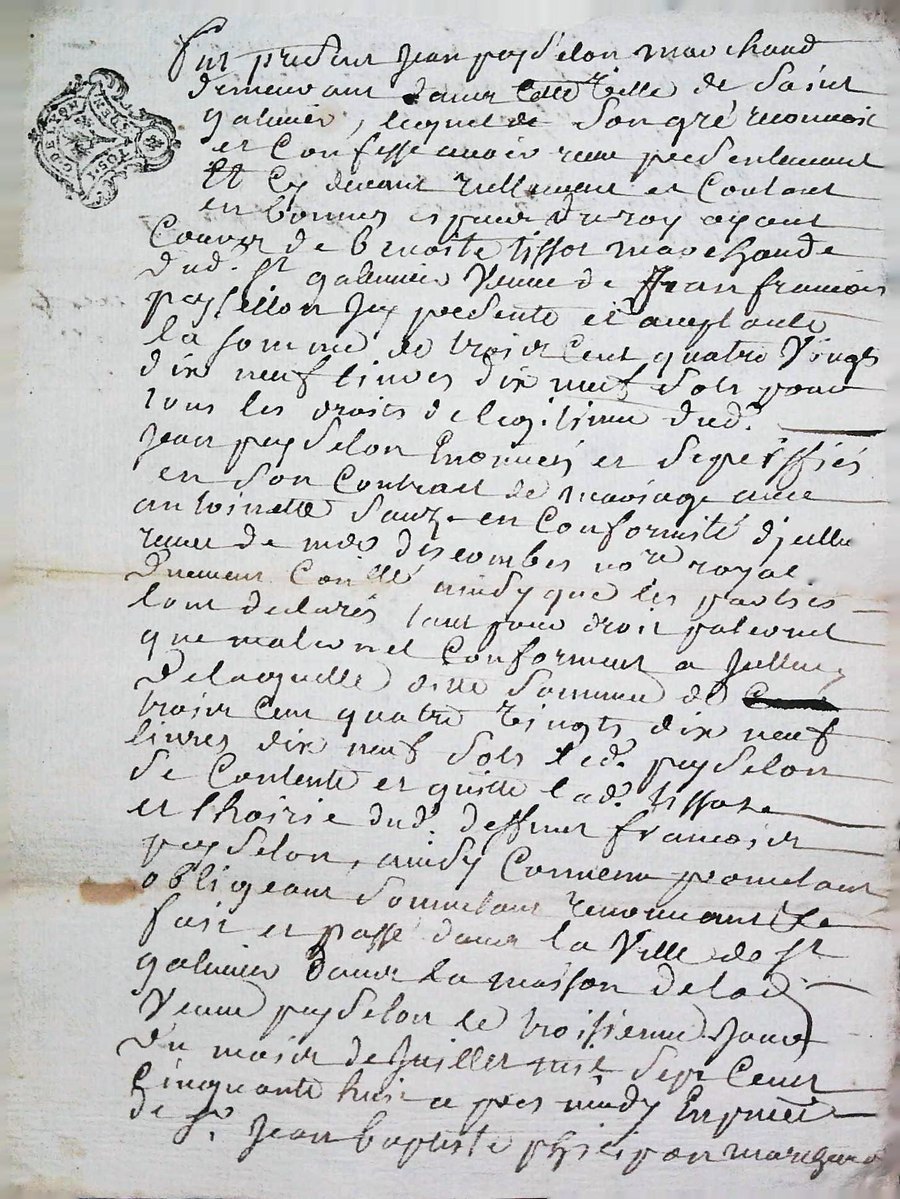 Fut present Jean paysselon marchand
demeurant dans cette ville de Saint
galmier, lequel de Son gré reconnoit
et Confesse avoir reçu presentement
Et Cy devant réellement et Contant
en bonnes especes du roy ayant
Cours de benoite tissot marchande
dud. St galmier Veuve de Jean francois
paysselon Icy presente et acceptante
la somme de trois Cent quatre Vingts
dix neuf livres dix neuf Sols pour
tous les droits de legitime dud.
Jean paysselon Enoncés et Speciffiés
en Son Contrat de mariage avec
antoinette en Conformité d'jcelluy
receu de me descombes nore royal
ainsy que les parties
lont declarés tant pour droit paternel
que maternel Conforment a jcelluy
De laquelle ditte Somme de
trois Cent quatre Vingts dix neuf
livres dix neuf Sols led. paysselon
Se Contente et quitte lad. tissot
et lhoirie dud. deffunt francois
paysselon, ainsy Convenu prometant
obligeant Soumetant renonceant &a
fait et passé dans la Ville de St
galmier dans la maison de lad.
Veuve paysselon le troisieme Jour
Du mois de Juillet mil Sept Cent
Cinquante huit a pres midy En presence
de Sr. Jean baptiste phelipon marchand